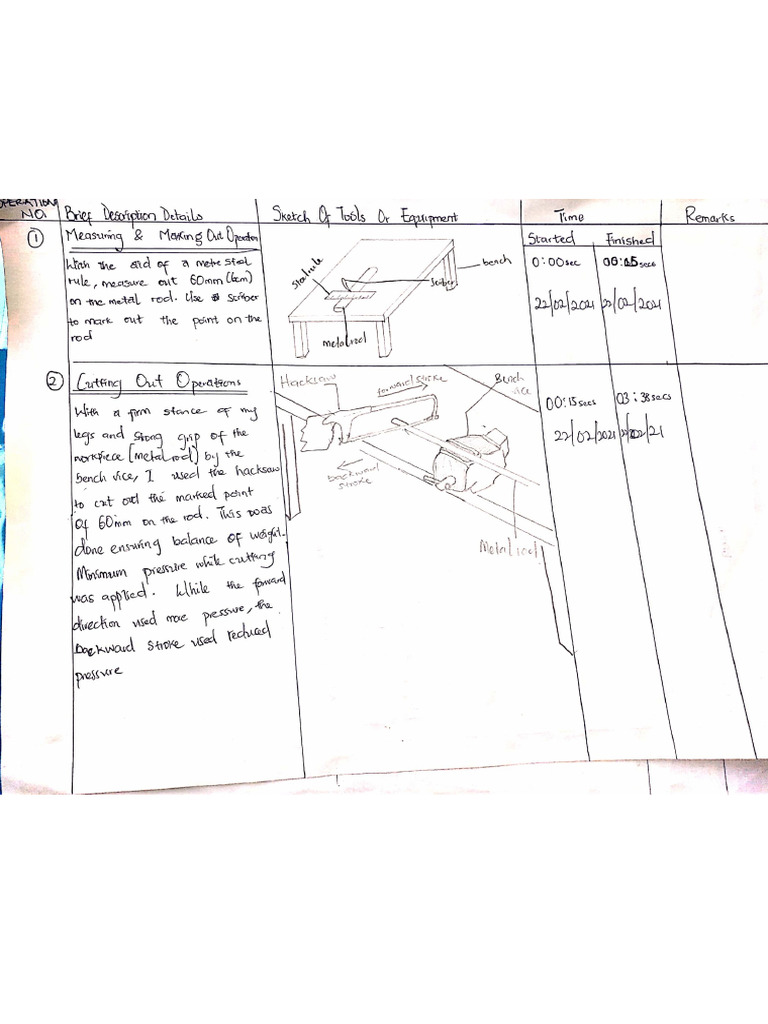 OPERATION
NO.
Brief Description Details
Sketch Of Tools Or Equipment
Time
Remarks
Started
Finished
1
Measuring & Marking Out Operation
With the aid of a metre steel
rule, measure out 60mm (6cm)
on the metal rod. Use scriber
to mark out the point on the
rod
steel rule
scriber
bench
metal rod
0:00sec
00:15secs
22/02/2021
22/02/2021
2
Cutting Out Operations
With a firm stance of my
legs and strong grip of the
workpiece [metal rod] by the
bench vice, I used the hacksaw
to cut out the marked point
of 60mm on the rod. This was
done ensuring balance of weight.
Minimum pressure while cutting
was applied. While the forward
direction used more pressure, the
backward stroke used reduced
pressure
Hacksaw
forward stroke
Bench
vice
backward
stroke
Metal rod
00:15secs
03:38secs
22/02/2021
22/02/21